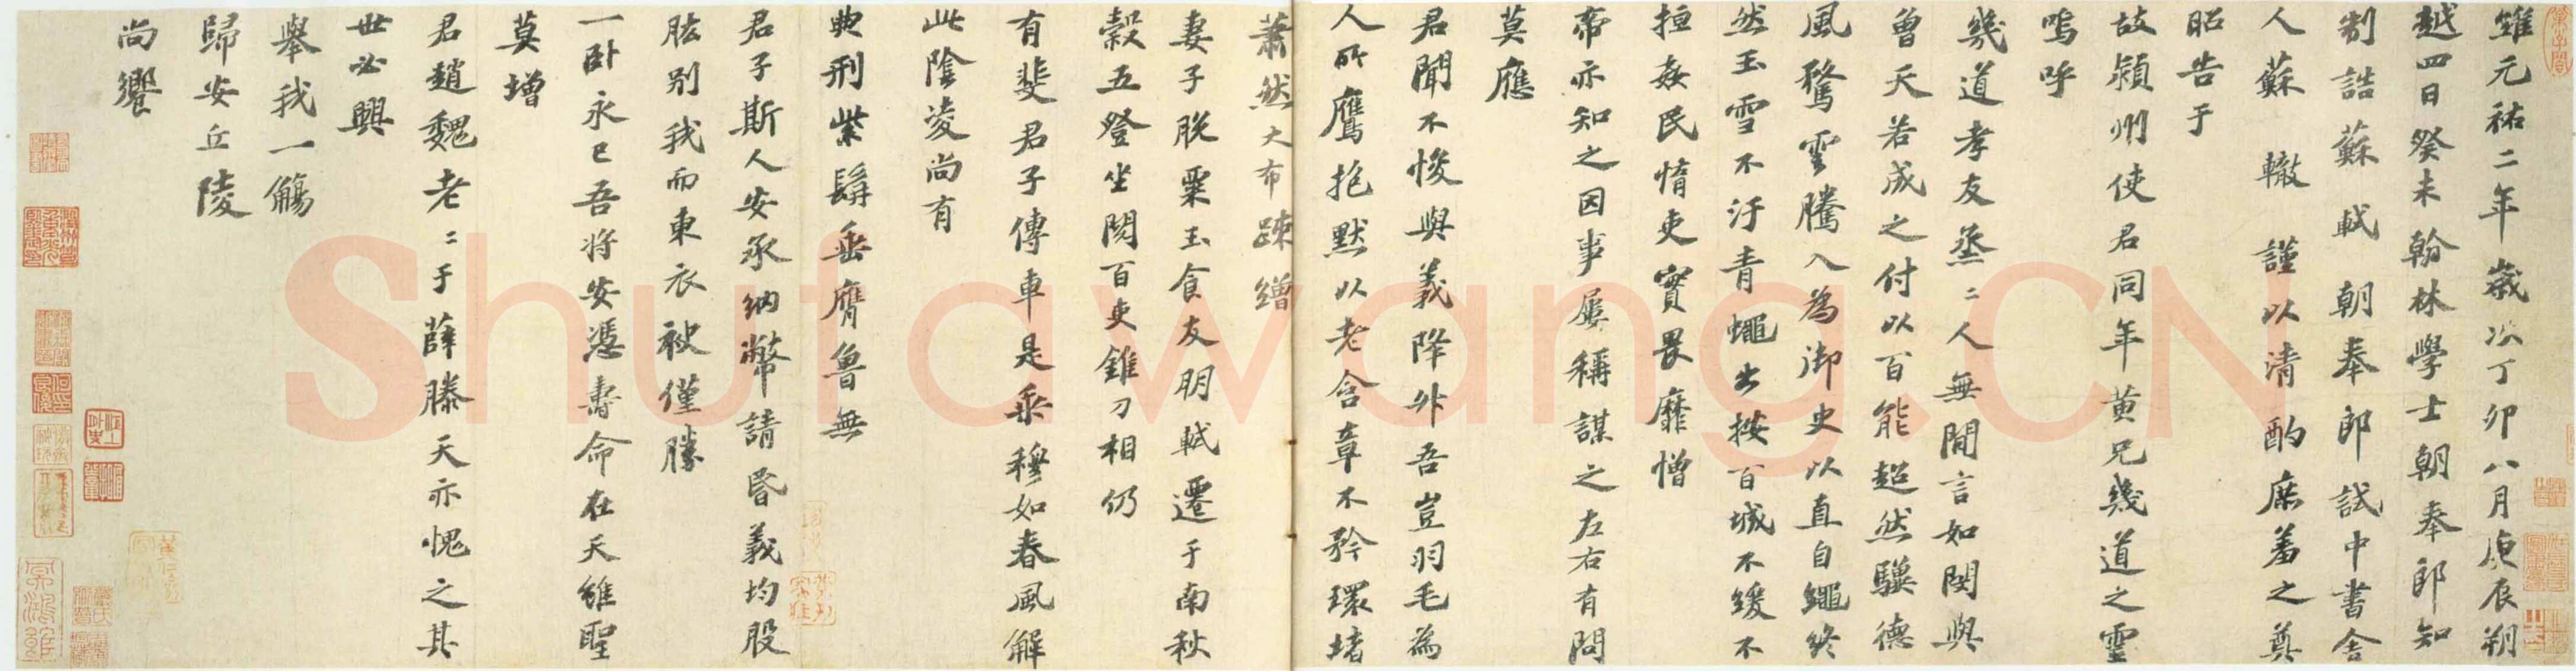 維元祐二年歲次丁卯八月庚辰朔
越四日癸未翰林學士朝奉郎知
制誥蘇軾朝奉郎試中書舍
人蘇轍謹以清酌庶羞之奠
昭告于
故潁州使君同年黃兄幾道之靈
嗚呼
幾道孝友烝〻人無閒言如閔與
曾天若成之付以百能超然驥德
風騖雲騰入為御史以直自繩終
然玉雪不汙青蠅出按百城不緩不
㨂姦民惰吏實畏靡憎
帝亦知之因事屢稱謀之左右有問
莫應
君聞不悛與義降升吾豈羽毛為
人所鷹抱默以老含章不矜環堵
蕭然大布疎繒
妻子脫粟玉食友朋軾遷于南秋
穀五登坐閱百吏錐刀相仍
有斐君子傳車是乘穆如春風解
此陰凌尚有
典刑紫髯垂膺魯無
君子斯人安承納幣請昏義均股
肱別我而東衣袂僅勝
一卧永已吾將安憑壽命在天雖聖
莫增
君趙魏老〻于薛滕天亦愧之其
世必興
舉我一觴
歸安丘陵
尚饗
Shufawang.CN